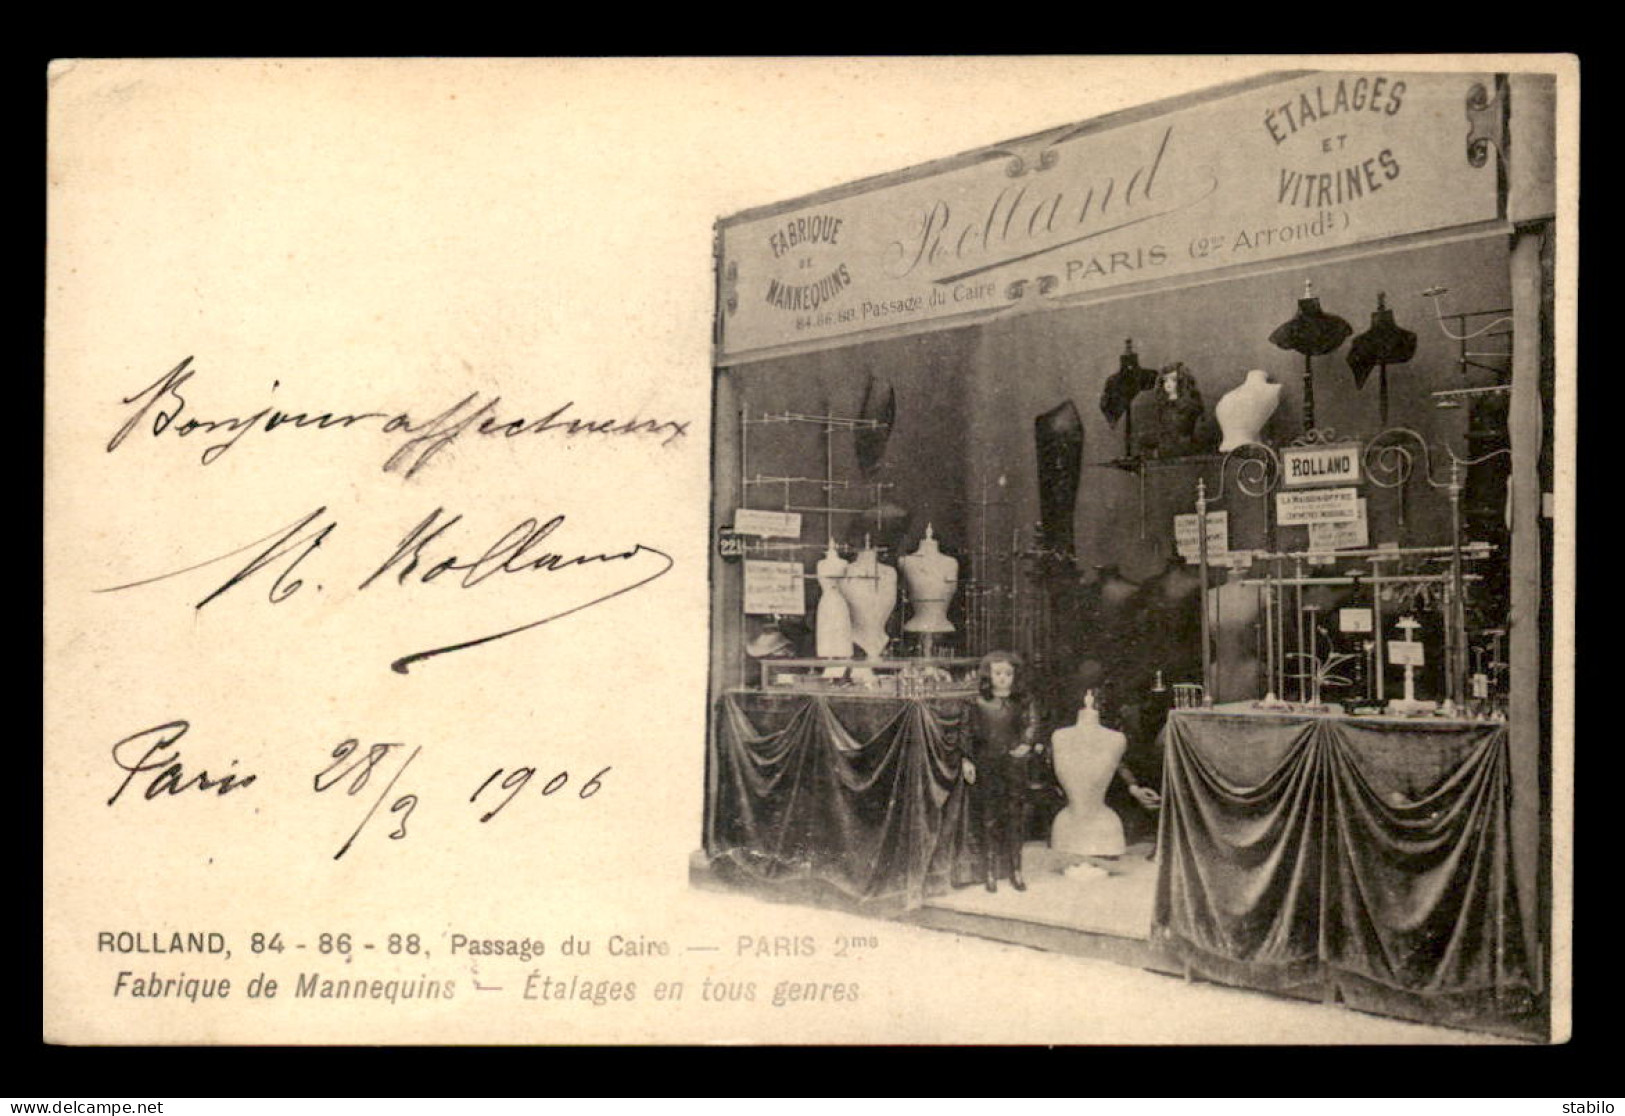 FABRIQUE
DE
MANNEQUINS
Rolland
ÉTALAGES
ET
VITRINES
84.86.88. Passage du Caire
PARIS (2me Arrondt)
ROLLAND
LA MAISON OFFRE
221
Bonjour affectueux
M. Rolland
Paris 28/3 1906
ROLLAND, 84 - 86 - 88, Passage du Caire — PARIS 2me
Fabrique de Mannequins — Étalages en tous genres
delcampe.net
stabilo